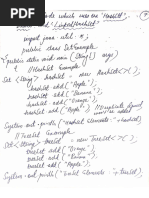 code which uses the 'HashSet',
'LinkedHashset'
import java.util.*;
public class SetExample
public static void main (String[] args)
{
// HashSet Example
Set <String> hashset = new HashSet<>();
hashset. add ("Apple");
hashset. add ("Banana");
hashset. add ("Orange");
hashset. add ("Apple");
System.out.println ("HashSet Elements: " + hashset)
// TreeSet Example
Set <String> treeSet = new TreeSet<>();
treeset. add ("Banana");
treeset. add ("Orange");
treeset. add ("Apple");
System.out.println ("TreeSet Elements: " + treeSet);